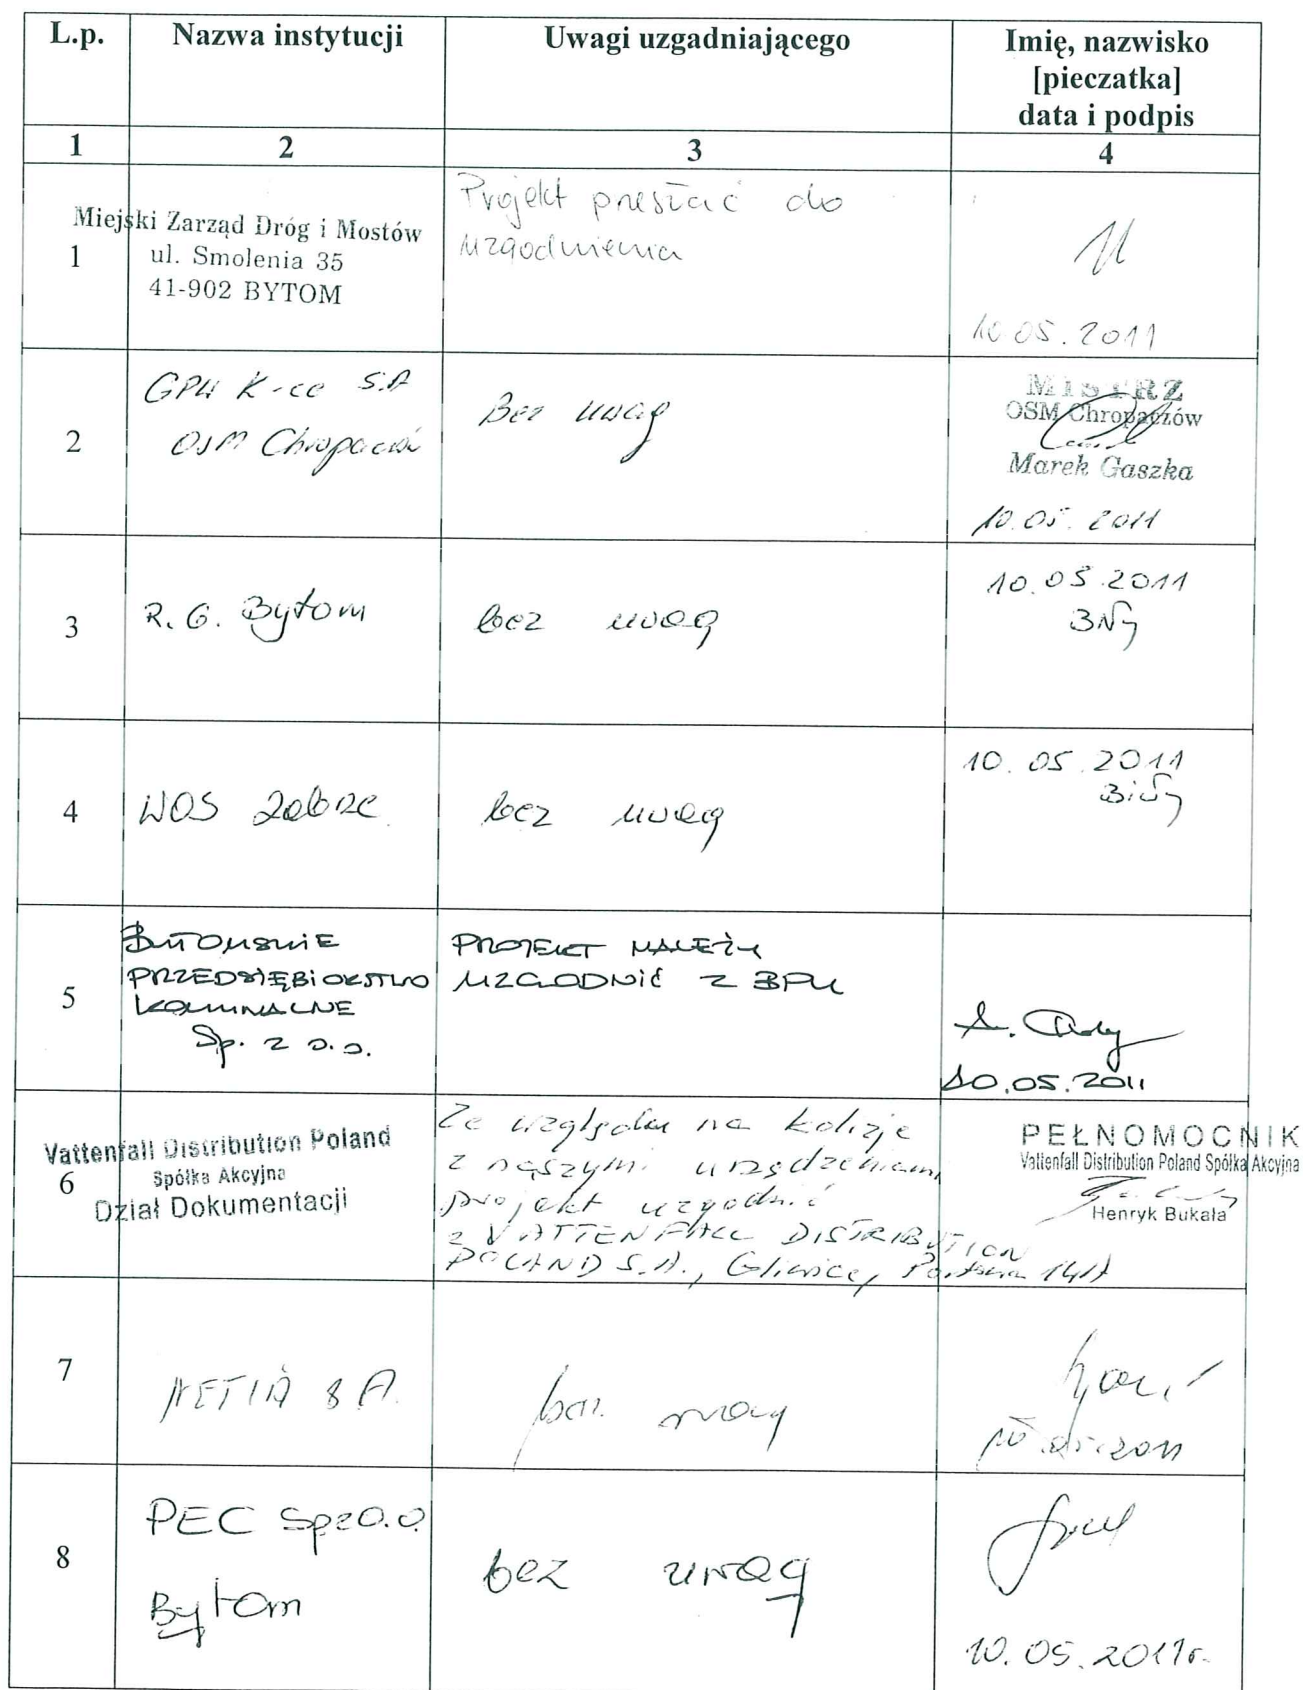 L.p.
Nazwa instytucji
Uwagi uzgadniającego
Imię, nazwisko
[pieczatka]
data i podpis
1
2
3
4
1
Miejski Zarząd Dróg i Mostów
ul. Smolenia 35
41-902 BYTOM
Projekt przesłać do
uzgodnienia
10.05.2011
2
GPW K-ce S.A
OSM Chropaczów
Bez uwag
MISTRZ
OSM Chropaczów
Marek Gaszka
10.05.2011
3
R.G. Bytom
bez uwag
10.05.2011
4
WOS Zabrze
bez uwag
10.05.2011
5
BYTOMSKIE
PRZEDSIĘBIORSTWO
KOMUNALNE
Sp. z o.o.
PROJEKT NALEŻY
UZGODNIĆ Z BPK
10.05.2011
6
Vattenfall Distribution Poland
Spółka Akcyjna
Dział Dokumentacji
Ze względu na kolizje
z naszymi urządzeniami
projekt uzgodnić
z VATTENFALL DISTRIBUTION
POLAND S.A., Gliwice, Portowa 14A
PEŁNOMOCNIK
Vattenfall Distribution Poland Spółka Akcyjna
Henryk Bukała
7
NETIA SA.
bez uwag
10.05.2011
8
PEC Sp z O.O.
Bytom
bez uwag
10.05.2011r.